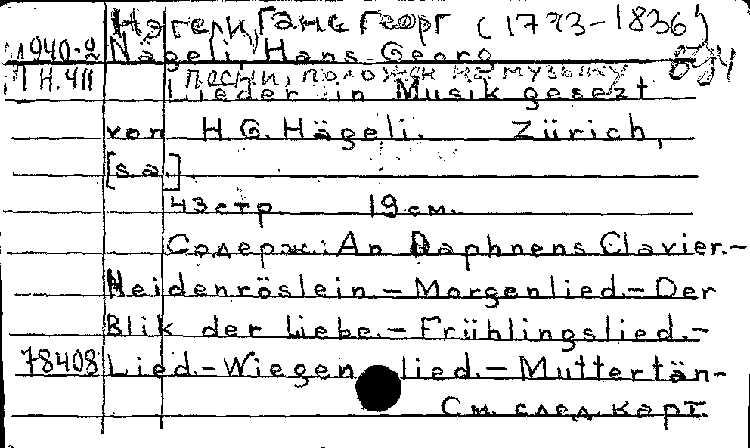 Нэгели, Ганс Георг (1773-1836)
М940-2 Nägeli, Hans Georg
П Н.411 песни, положен на музыку
Lieder in Musik gesezt
von H. G. Hägeli. Zürich,
[s.a.]
43 стр. 19 см.
Содерж.: An Daphnens Clavier.-
Heidenröslein. - Morgenlied. - Der
Blik der Liebe. - Frühlingslied. -
78408 Lied. - Wiegenlied. - Muttertän-
См. след. карт.